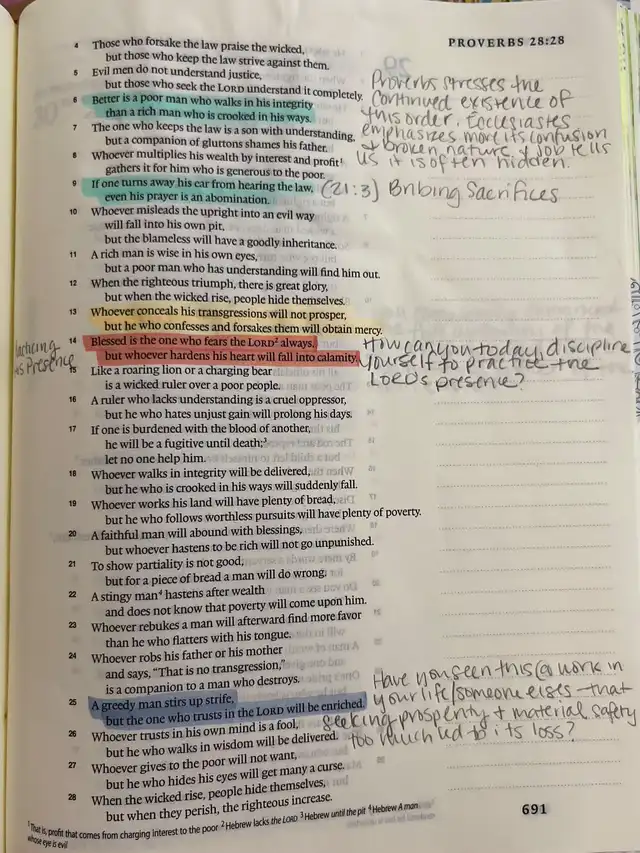 PROVERBS 28:28
4 Those who forsake the law praise the wicked,
but those who keep the law strive against them.
5 Evil men do not understand justice,
but those who seek the LORD understand it completely.
6 Better is a poor man who walks in his integrity
than a rich man who is crooked in his ways.
7 The one who keeps the law is a son with understanding,
but a companion of gluttons shames his father.
8 Whoever multiplies his wealth by interest and profit¹
gathers it for him who is generous to the poor.
9 If one turns away his ear from hearing the law,
even his prayer is an abomination.
10 Whoever misleads the upright into an evil way
will fall into his own pit,
but the blameless will have a goodly inheritance.
11 A rich man is wise in his own eyes,
but a poor man who has understanding will find him out.
12 When the righteous triumph, there is great glory,
but when the wicked rise, people hide themselves.
13 Whoever conceals his transgressions will not prosper,
but he who confesses and forsakes them will obtain mercy.
14 Blessed is the one who fears the LORD² always,
but whoever hardens his heart will fall into calamity.
15 Like a roaring lion or a charging bear
is a wicked ruler over a poor people.
16 A ruler who lacks understanding is a cruel oppressor,
but he who hates unjust gain will prolong his days.
17 If one is burdened with the blood of another,
he will be a fugitive until death;³
let no one help him.
18 Whoever walks in integrity will be delivered,
but he who is crooked in his ways will suddenly fall.
19 Whoever works his land will have plenty of bread,
but he who follows worthless pursuits will have plenty of poverty.
20 A faithful man will abound with blessings,
but whoever hastens to be rich will not go unpunished.
21 To show partiality is not good,
but for a piece of bread a man will do wrong.
22 A stingy man⁴ hastens after wealth
and does not know that poverty will come upon him.
23 Whoever rebukes a man will afterward find more favor
than he who flatters with his tongue.
24 Whoever robs his father or his mother
and says, “That is no transgression,”
is a companion to a man who destroys.
25 A greedy man stirs up strife,
but the one who trusts in the LORD will be enriched.
26 Whoever trusts in his own mind is a fool,
but he who walks in wisdom will be delivered.
27 Whoever gives to the poor will not want,
but he who hides his eyes will get many a curse.
28 When the wicked rise, people hide themselves,
but when they perish, the righteous increase.
¹ That is, profit that comes from charging interest to the poor ² Hebrew lacks the LORD ³ Hebrew until the pit ⁴ Hebrew A man
whose eye is evil
691
Proverbs stresses the
continued existence of
this order. Ecclesiastes
emphasizes more its confusion
+ broken nature + Job tells
us it is often hidden.
(21:3) Bribing Sacrifices
Presence
How can you today, discipline
yourself to practice the
LORD's presence?
Have you seen this @ work in
your life/someone elses - that
seeking prosperity + material safety
too much led to its loss?